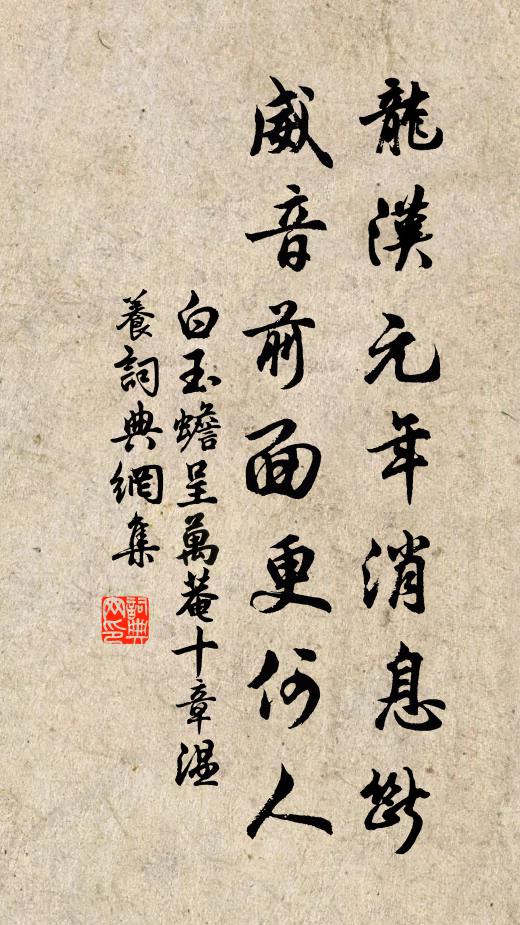 龍漢元年消息斷
威音前面更何人
白玉蟾呈萬菴十章溫
養詞典網集
詞典
网印